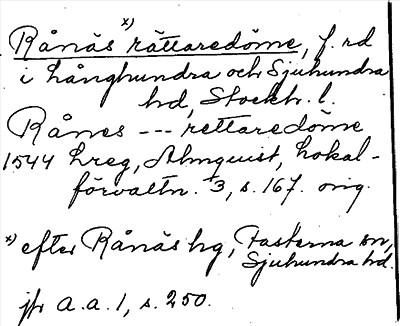 Rånäs x) rättaredöme, f. rd
i Långhundra och Sjuhundra
hd, Stockh. l.
Rånes --- rettaredöme
1544 Lreg, Almquist, Lokal-
förvaltn. 3, s. 167. orig.
x) efter Rånäs hg, Fasterna sn,
Sjuhundra hd.
jfr a. a. 1, s. 250.